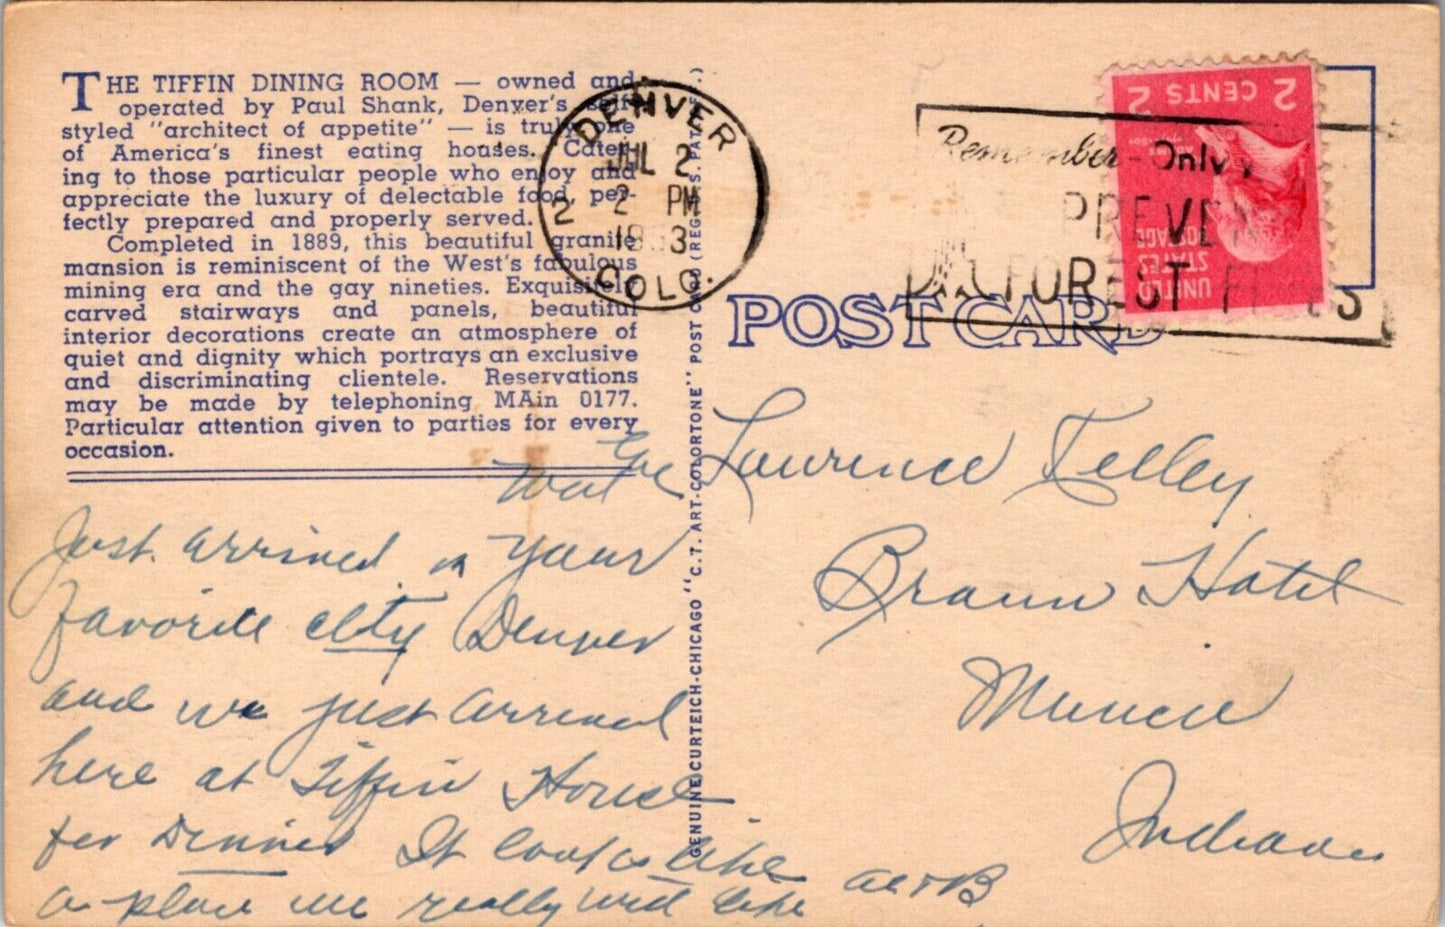 THE TIFFIN DINING ROOM — owned and
operated by Paul Shank, Denver's self-
styled "architect of appetite" — is truly one
of America's finest eating houses. Cater-
ing to those particular people who enjoy and
appreciate the luxury of delectable food, per-
fectly prepared and properly served.
Completed in 1889, this beautiful granite
mansion is reminiscent of the West's fabulous
mining era and the gay nineties. Exquisitely
carved stairways and panels, beautiful
interior decorations create an atmosphere of
quiet and dignity which portrays an exclusive
and discriminating clientele. Reservations
may be made by telephoning MAin 0177.
Particular attention given to parties for every
occasion.
Just arrived in your
favorite city Denver
and we just arrived
here at Tiffin House
for Dinner It looks like
a place we really will like
GENUINE CURTEICH-CHICAGO "C.T. ART-COLORTONE" POST CARD (REG. U.S. PAT. OFF.)
DENVER
JUL 2
2 PM
2
COLO.
Remember - Only
PREVENT
FOREST FIRES
2 CENTS 2
UNITED
STATES
POSTAGE
POST CARD
Lawrence Kelley
Braun Hotel
Muncie
Indiana